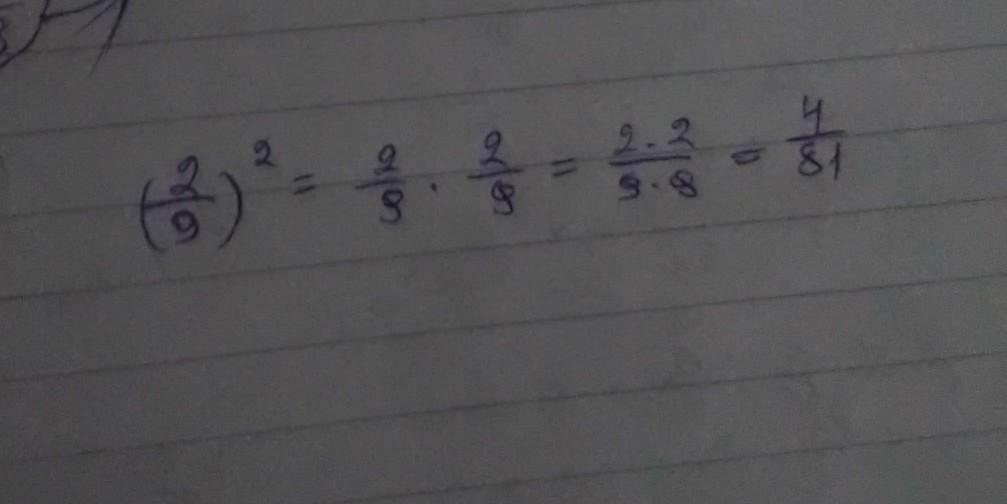 (2/9)² = 2/9 · 2/9 = 2·2/9·9 = 4/81